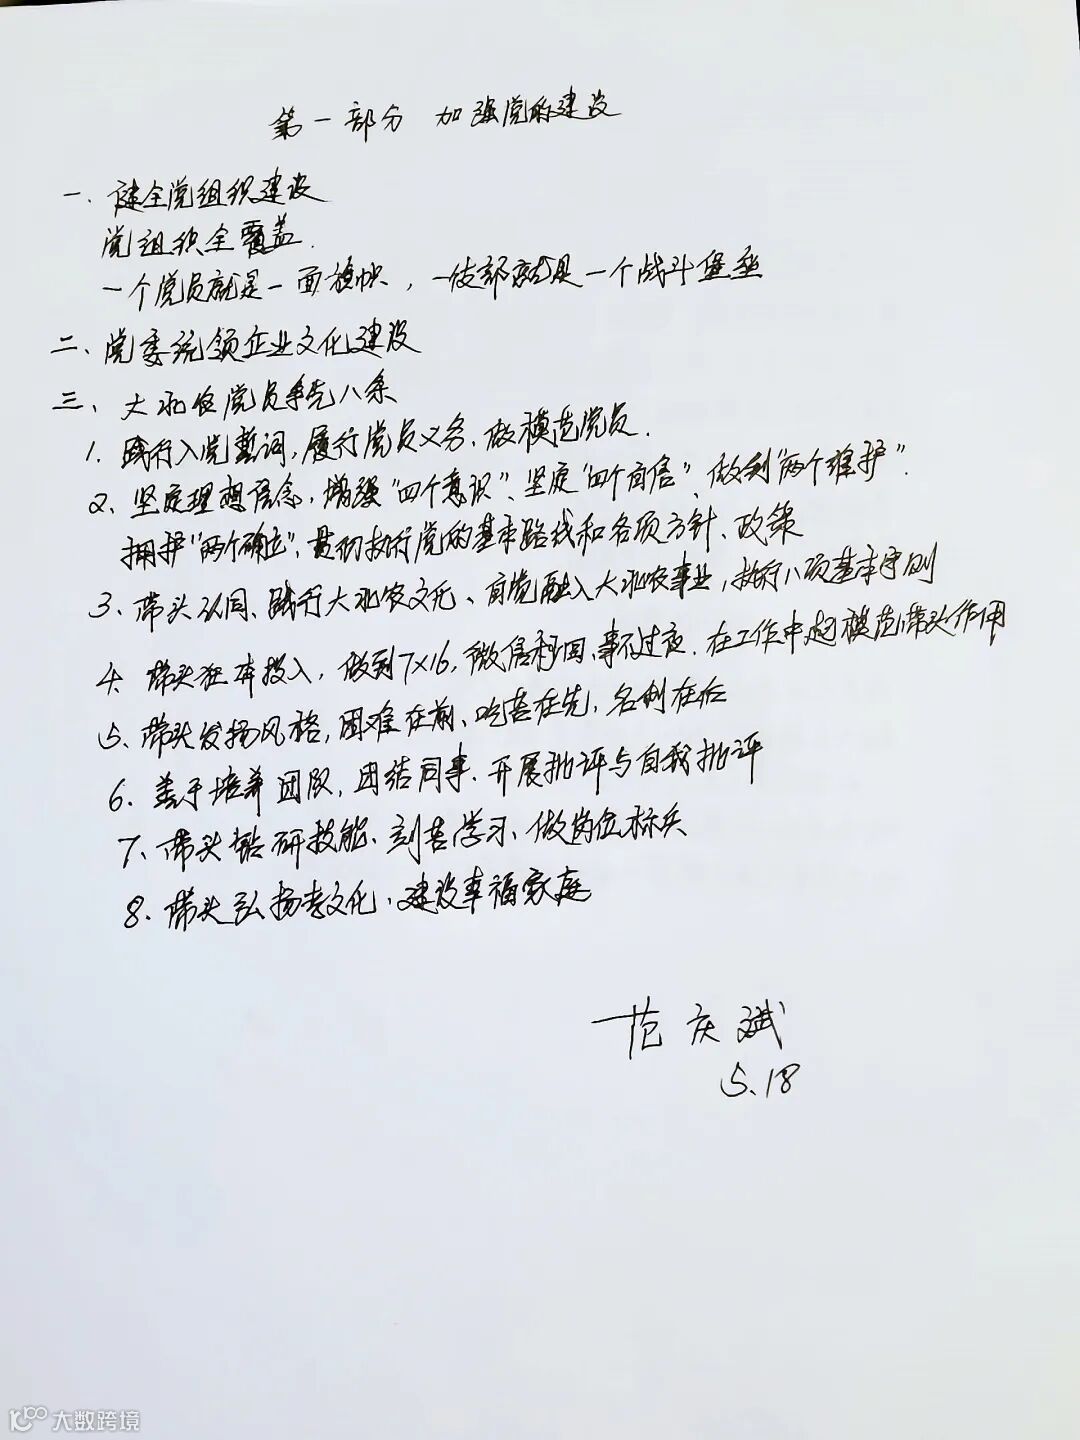 第一部分 加强党的建设
一、健全党组织建设
党组织全覆盖.
一个党员就是一面旗帜，一支部就是一个战斗堡垒
二、党委统领企业文化建设
三、大北农党员争先八条
1. 践行入党誓词,履行党员义务、做模范党员.
2、坚定理想信念,增强“四个意识”、坚定“四个自信”、做到“两个维护”.
拥护“两个确立”、贯彻执行党的基本路线和各项方针、政策
3、带头认同、践行大北农文化、自觉融入大北农事业,执行八项基本守则
4、带头狂奔投入,做到7×16,微信秒回、事不过夜.在工作中起模范带头作用
5、带头发扬风格,困难在前、吃苦在先、名利在后
6、善于培养团队,团结同事、开展批评与自我批评
7、带头钻研技能、刻苦学习、做岗位标兵
8、带头弘扬孝文化、建设幸福家庭
范庆斌
5.18
大数跨境